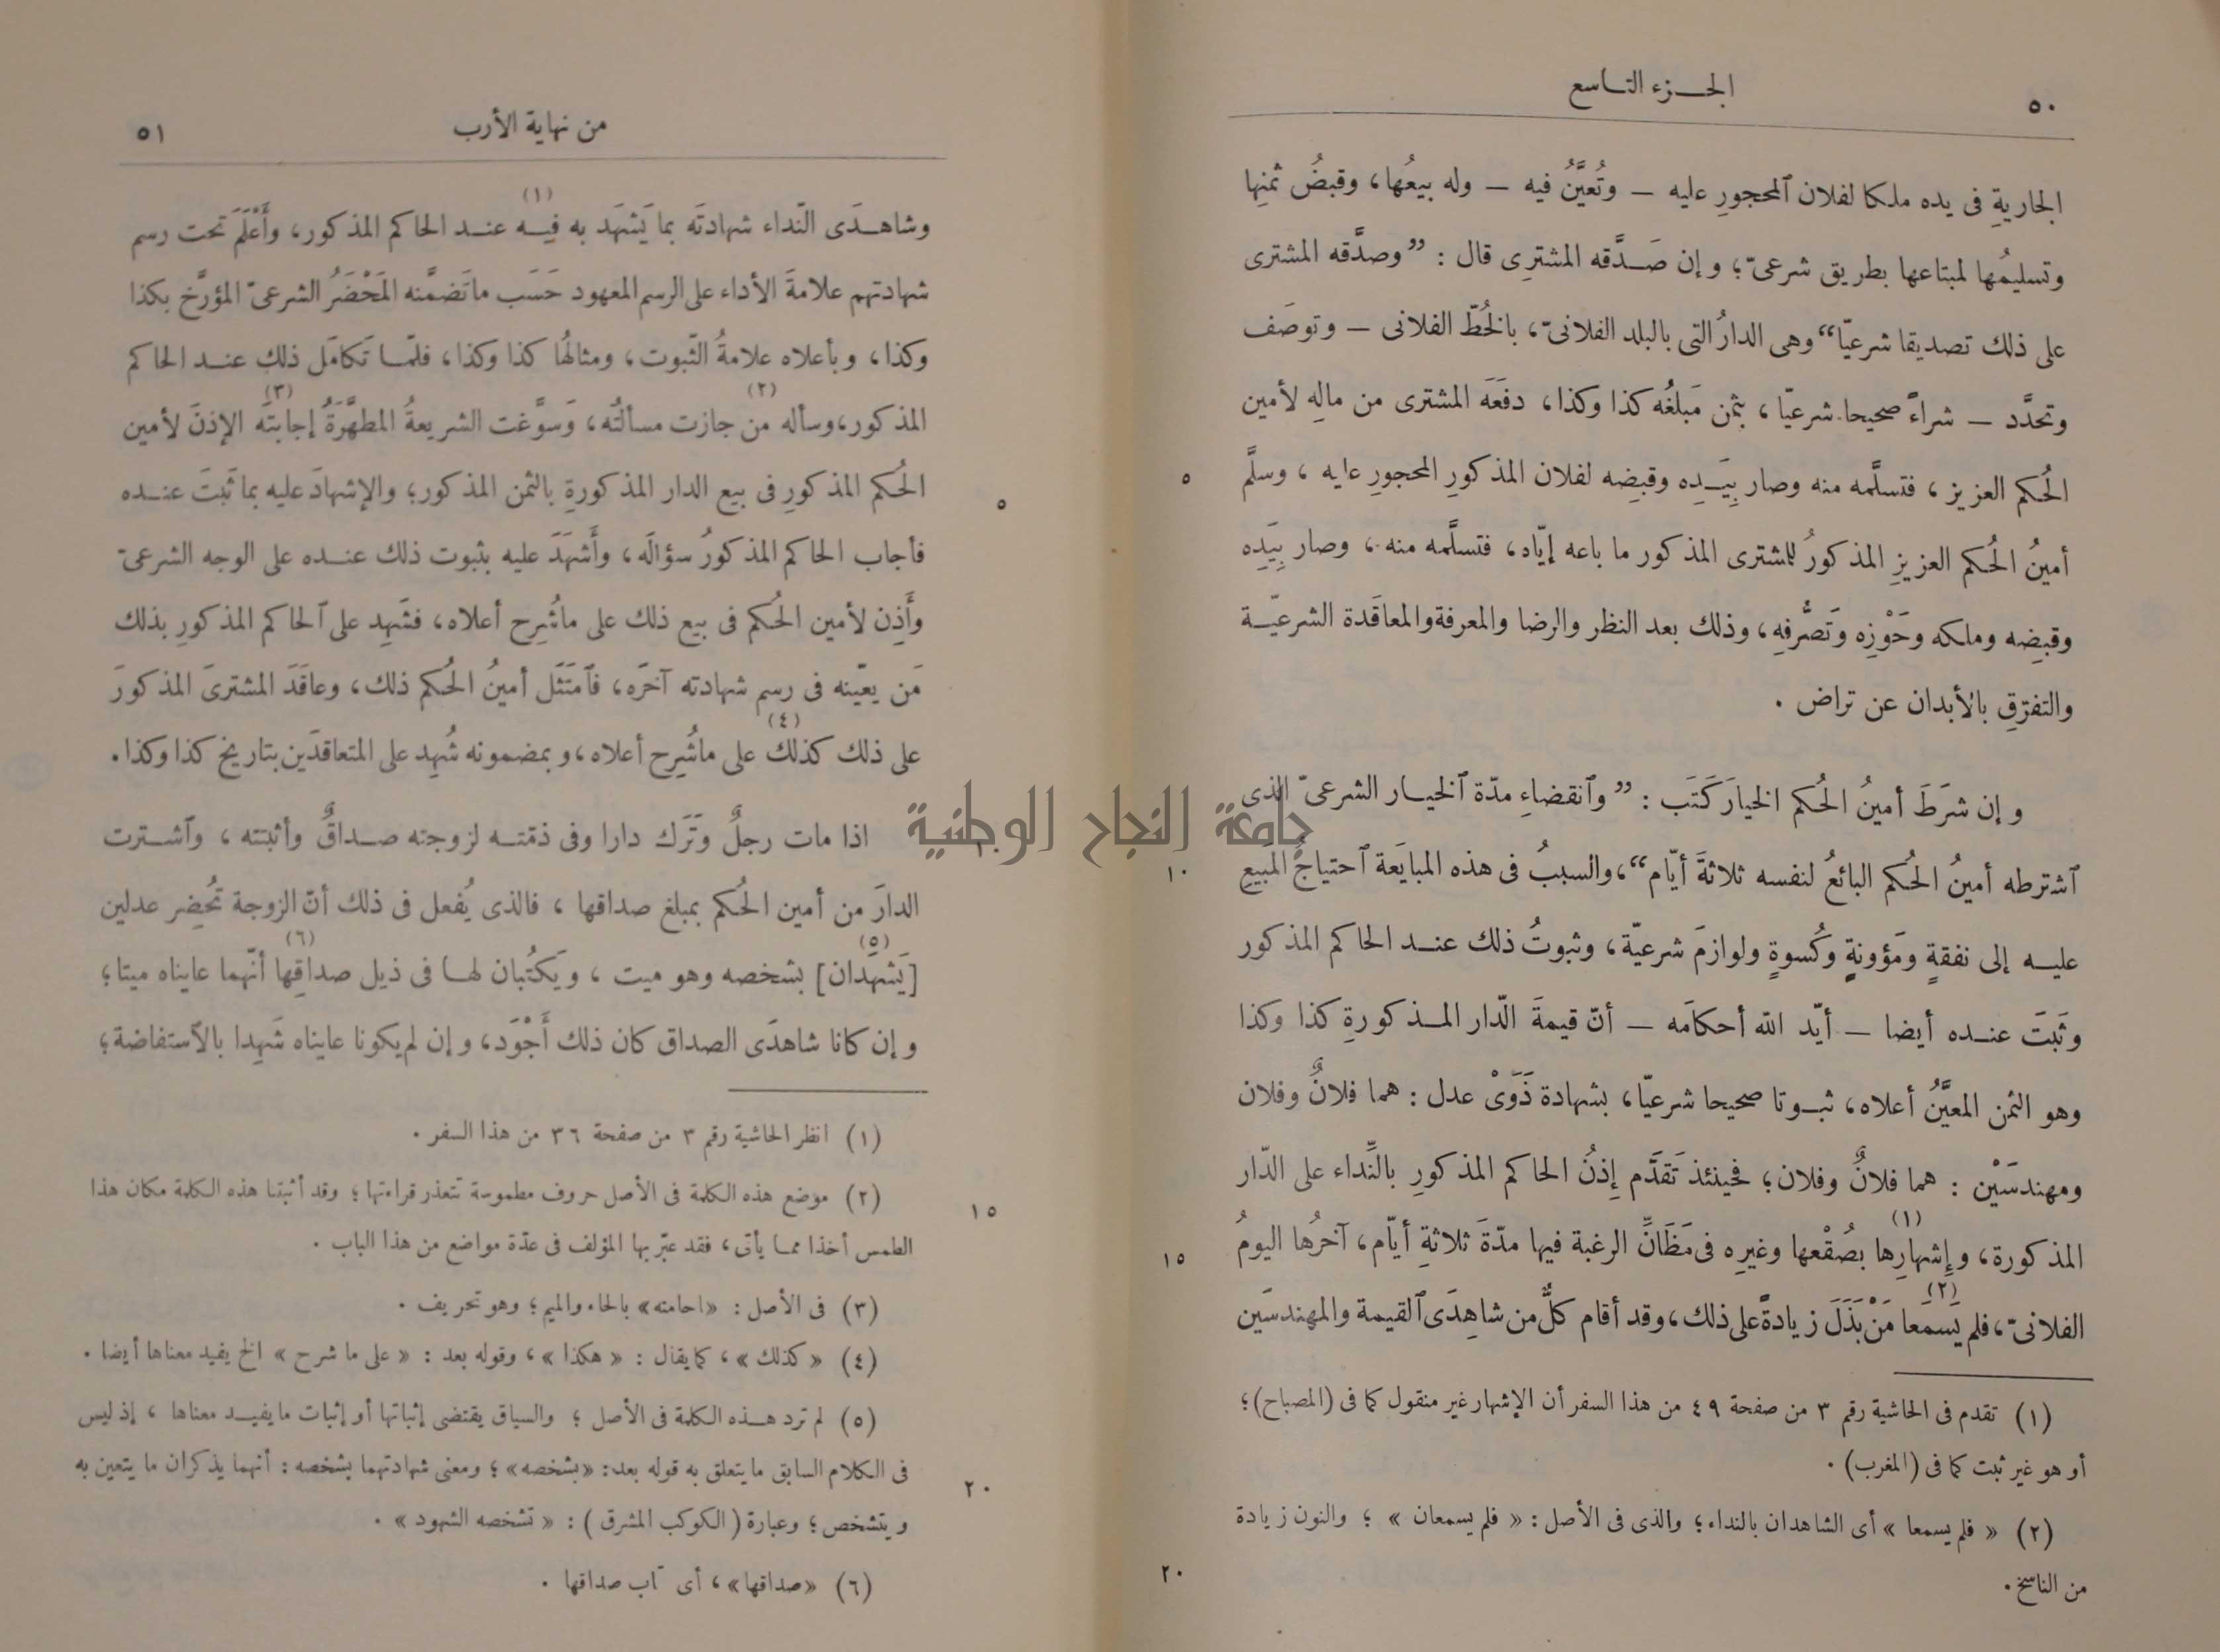 ٥٠
الجـزء التـاسع
الجاريةِ فى يده ملكا لفلان المحجورِ عليه – وتُعيَّنُ فيه – وله بيعُها، وقبضُ ثمنِها
وتسليمُها لمبتاعها بطريق شرعىّ؛ وإن صَدَّقه المشترِى قال : ”وصدَّقه المشترى
على ذلك تصديقا شرعيّا“ وهى الدارُ التى بالبلد الفلانىّ، بالخُطّ الفلانى – وتوصَف
وتحدَّد – شراءً صحيحا شرعيّا، بثمن مَبلغُه كذا وكذا، دفعَه المشترى من مالِه لأمين
الحُكم العزيز، فتسلَّمه منه وصار بِيَدِه وقبضِه لفلان المذكورِ المحجورِ عليه، وسلَّم
٥
أمينُ الحُكم العزيزِ المذكورُ للمشترى المذكور ما باعه إيّاه، فتسلَّمه منه، وصار بِيَدِه
وقبضِه وملكه وحَوْزِه وتَصرُّفِه، وذلك بعد النظر والرضا والمعرفة والمعاقَدة الشرعيّـة
والتفرّقِ بالأبدان عن تراض .
وإن شرَطَ أمينُ الحُكم الخيارَ كَتَب : ”وٱنقضاءِ مدّة ٱلخيـار الشرعىّ الذى
ٱشترطه أمينُ الحُكم البائعُ لنفسه ثلاثةَ أيّام“، والسببُ فى هذه المبايَعة ٱحتياجُ المَبيعِ
١٠
عليـه إلى نفقةٍ ومَؤونةٍ وكُسوةٍ ولوازمَ شرعيّة، وثبوتُ ذلك عنـد الحاكم المذكور
وثَبَتَ عنـده أيضا – أيّد الله أحكامَه – أنّ قيمةَ الدّار المـذكورةِ كذا وكذا
وهو الثمن المعيَّنُ أعلاه، ثبـوتا صحيحا شرعيّا، بشهادة ذَوَىْ عدل : هما فلانٌ وفلان
ومهندسَيْن : هما فلانٌ وفلان؛ فحينئذ تَقدَّم إِذنُ الحاكم المذكورِ بالنِّداء على الدّار
المذكورة، وإِشهارِها (١) بصُقْعها وغيرِه فى مَظَانِّ الرغبة فيها مدّةَ ثلاثةِ أيّام، آخرُها اليومُ
١٥
الفلانىّ، فلم يَسمَعا (٢) مَنْ بَذَلَ زيادةً على ذلك، وقد أقام كلٌّ من شاهِدَى ٱلقيمة والمهندسَين
(١) تقدم فى الحاشية رقم ٣ من صفحة ٤٩ من هذا السفر أن الإشهار غير منقول كما فى (المصباح)؛
أو هو غير ثبت كما فى (المغرب) .
(٢) « فلم يسمعا » أى الشاهدان بالنداء؛ والذى فى الأصل : « فلم يسمعان » ؛ والنون زيادة
من الناسخ .
٢٠
من نهاية الأرب
٥١
وشاهـدَى النّداء شهادتَه بما يَشهَد به فيـه (١) عنـد الحاكم المذكور، وأَعْلَمَ تحت رسم
شهادتهم علامةَ الأداء على الرسم المعهود حَسَب ما تَضمَّنه المَحْضَرُ الشرعىّ المؤرَّخ بكذا
وكذا، وبأعلاه علامةُ الثّبوت، ومثالهُا كذا وكذا، فلمّـا تَكامَل ذلك عنـد الحاكم
المذكور، وسأله من (٢) جازت مسألتُه، وَسوَّغت الشريعةُ المطهَّرَةُ إجابتَه (٣) الإذنَ لأمين
الحُكم المذكورِ فى بيع الدار المذكورةِ بالثمن المذكور؛ والإشهادَ عليه بما ثَبتَ عنـده
٥
فأجاب الحاكم المذكورُ سؤالَه، وأَشهَدَ عليه بثبوت ذلك عنـده على الوجه الشرعىّ
وأَذِن لأمين الحُكم فى بيع ذلك على ما شُرِح أعلاه، فشَهِد على ٱلحاكم المذكورِ بذلك
مَن يعيّنه فى رسم شهادته آخَره، فٱمتَثَل أمينُ الحُكم ذلك، وعاقَدَ المشترىَ المذكورَ
على ذلك كذلك (٤) على ما شُرِح أعلاه، وبمضمونه شُهِد على المتعاقدَين بتاريخ كذا وكذا.
اذا مات رجلٌ وَتَرَك دارا وفى ذمّتـه لزوجته صـداقٌ وأثبتته ، وٱشـترت
١٠
جامعة النجاح الوطنية
الدارَ من أمين الحُكم بمبلغ صداقها ، فالذى يُفعل فى ذلك أنّ الزوجة تُحضِر عدلين
[يَشهَدان] (٥) بشخصه وهو ميت ، ويَكتُبان لهـا فى ذيل صداقِها (٦) أنّهما عايناه ميتا؛
وإن كانا شاهدَى الصداق كان ذلك أَجْوَد، وإن لم يكونا عايناه شَهِدا بٱلاستفاضة؛
(١) انظر الحاشية رقم ٣ من صفحة ٣٦ من هذا السفر .
(٢) موضع هذه الكلمة فى الأصل حروف مطموسة تتعذر قراءتها؛ وقد أثبتنا هذه الكلمة مكان هذا
١٥
الطمس أخذا ممـا يأتى، فقد عبّر بها المؤلف فى عدّة مواضع من هذا الباب .
(٣) فى الأصل : «احامته» بالحاء والميم؛ وهو تحريف .
(٤) « كذلك »، كما يقال : « هكذا »، وقوله بعد : « على ما شرح » الخ يفيد معناها أيضا .
(٥) لم ترد هـذه الكلمة فى الأصل ؛ والسياق يقتضى إثباتها أو إثبات ما يفيـد معناها ، إذ ليس
فى الكلام السابق ما يتعلق به قوله بعد: «بشخصه» ؛ ومعنى شهادتهما بشخصه : أنهما يذكران ما يتعين به
٢٠
ويتشخص؛ وعبارة (الكوكب المشرق) : « تشخصه الشهود » .
(٦) «صداقها» ، أى صداقها .